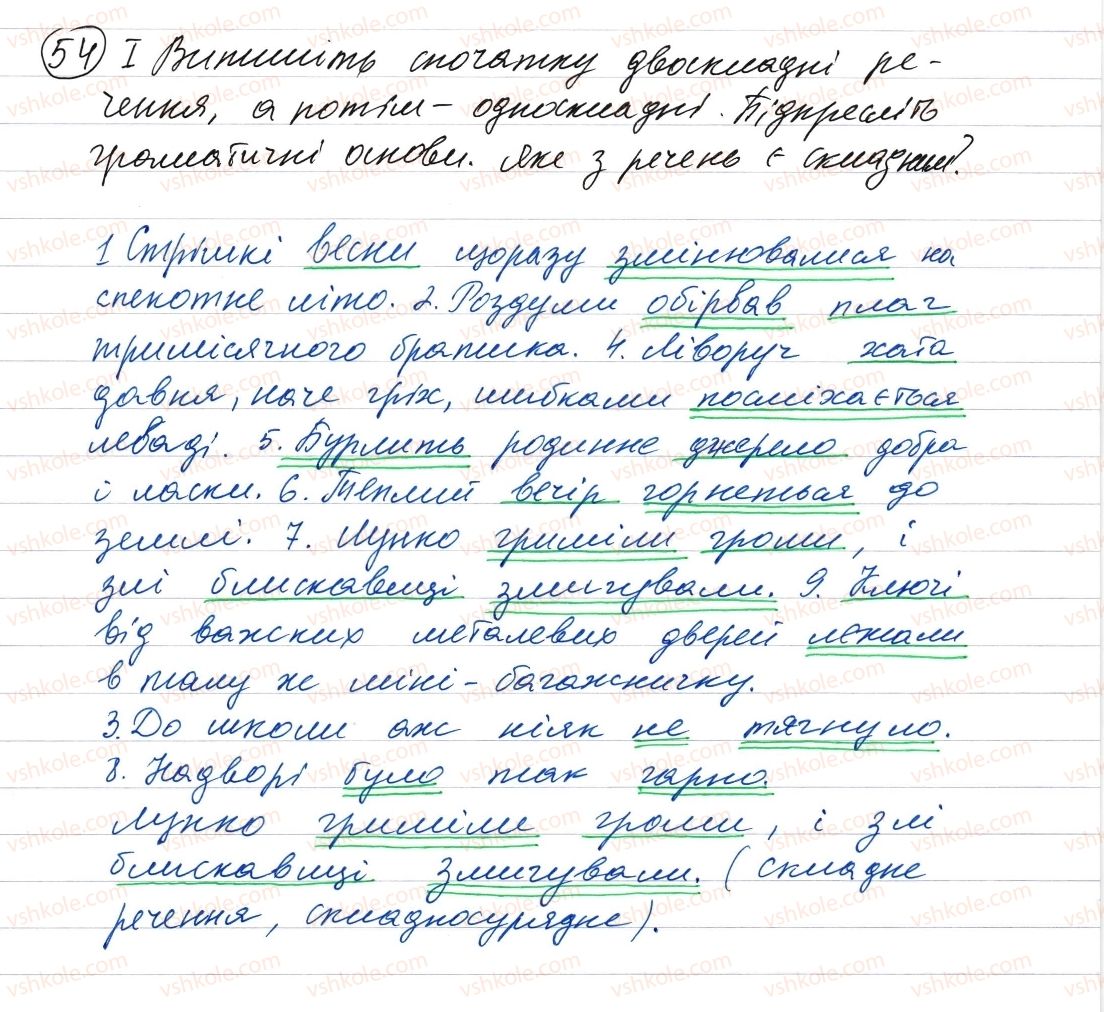 54 І Випишіть спочатку двоскладні ре-
чення, а потім – односкладні. Підкресліть
граматичні основи. Яке з речень є складним?
1 Стрімкі весни щоразу змінювалися на
спекотне літо. 2. Роздуми обірвав плач
тримісячного братика. 4. Ліворуч хата
давня, наче гріх, шибками посміхається
леваді. 5. Бурлить родинне джерело добра
і ласки. 6. Теплий вечір горнеться до
землі. 7. Лунко гриміли громи, і
злі блискавиці змигували. 9. Ключі
від важких металевих дверей лежали
в тому ж міні-багажничку.
3. До школи аж ніяк не тягнуло.
8. Надворі було так гарно.
Лунко гриміли громи, і злі
блискавиці змигували. (складне
речення, складносурядне).